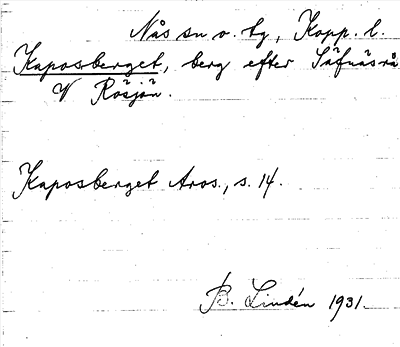 Nås sn o. by, Kopp. l.
Kaposberget, berg efter Säfnäsrå
V Rösjön.
Kaposberget Aros., s. 14.
B. Lindén 1931.